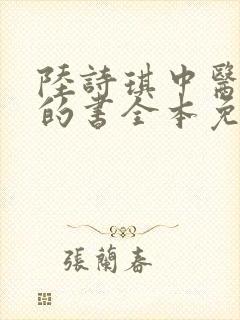 陸詩琪中醫
的書全本免
張蘭春